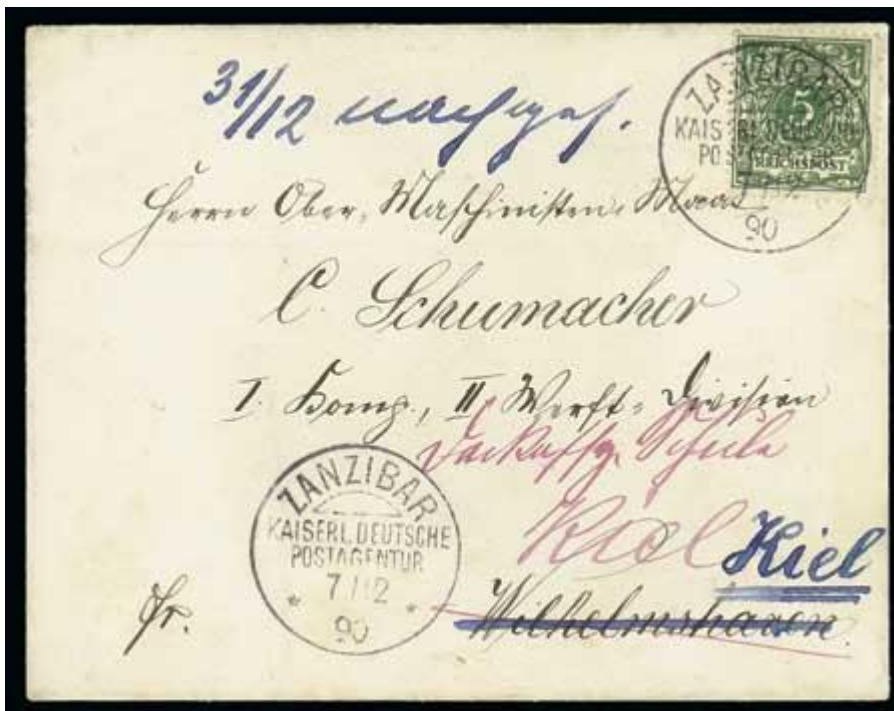 31/12 nachges.
5
REICHSPOST
ZANZIBAR
KAISERL. DEUTSCHE
POSTAGENTUR
7/12
90
Herrn Ober-Maschinisten-Maat
C. Schumacher
I. Komp., II Werft-Division
Schule
Kiel Kiel
Wilhelmshaven.
ZANZIBAR
KAISERL. DEUTSCHE
POSTAGENTUR
7/12
90
Fr.